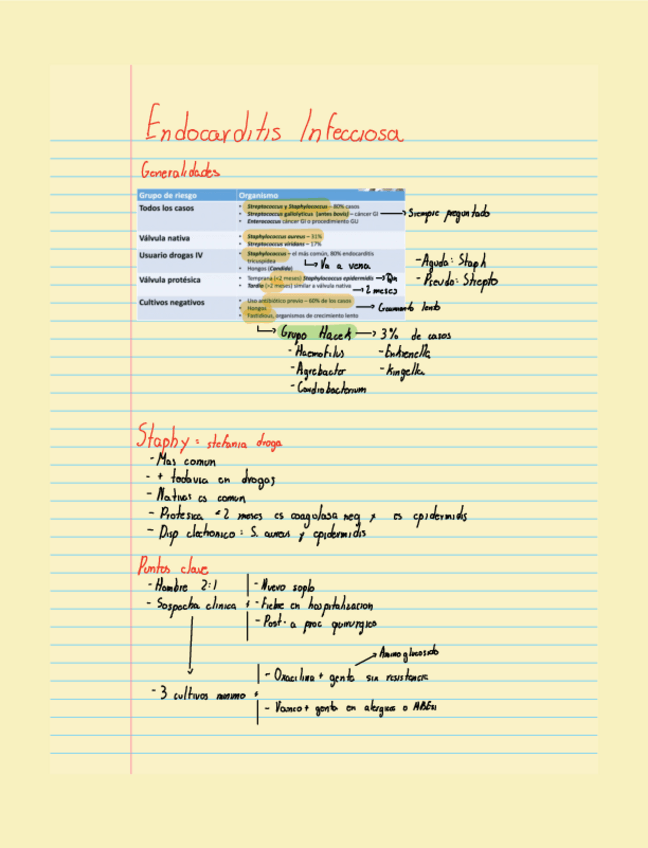 Endocarditis Infecciosa
Generalidades
Grupo de riesgo Organismo
Todos los casos
• Streptococcus y Staphylococcus – 80% casos
• Streptococcus gallolyticus (antes bovis) – cáncer GI → Siempre preguntado
• Enterococcus cáncer GI o procedimiento GU
Válvula nativa
• Staphylococcus aureus – 31%
• Streptococcus viridans – 17%
Usuario drogas IV
• Staphylococcus – el más común, 80% endocarditis
tricuspídea
→ Va a vena
• Hongos (Candida)
- Aguda: Staph
- Pseudo: Strepto
Válvula protésica
• Temprana (<2 meses) Staphylococcus epidermidis →
• Tardía (>2 meses) similar a válvula nativa
→ 2 meses
Cultivos negativos
• Uso antibiótico previo – 60% de los casos
• Hongos
• Fastidious, organismos de crecimiento lento
→ Crecimiento lento
→ Grupo Hacek → 3% de casos
- Haemofilus - Eikenella
- Agrebacter - Kingella
- Cardiobacterium
Staphy = stefania droga
- Mas comun
- + todavia en drogas
- Nativas es comun
- Protesica <2 meses es coagulasa neg y es epidermidis
- Disp electronico: S. aureus y epidermidis
Puntos clave
- Hombre 2:1
- Sospecha clinica :
- Nuevo soplo
- Fiebre en hospitalizacion
- Post. a proc quirurgico
→ Aminoglucosido
- 3 cultivos minimo +
- Oxacilina + genta sin resistencia
- Vanco + genta en alergicos o MRSA